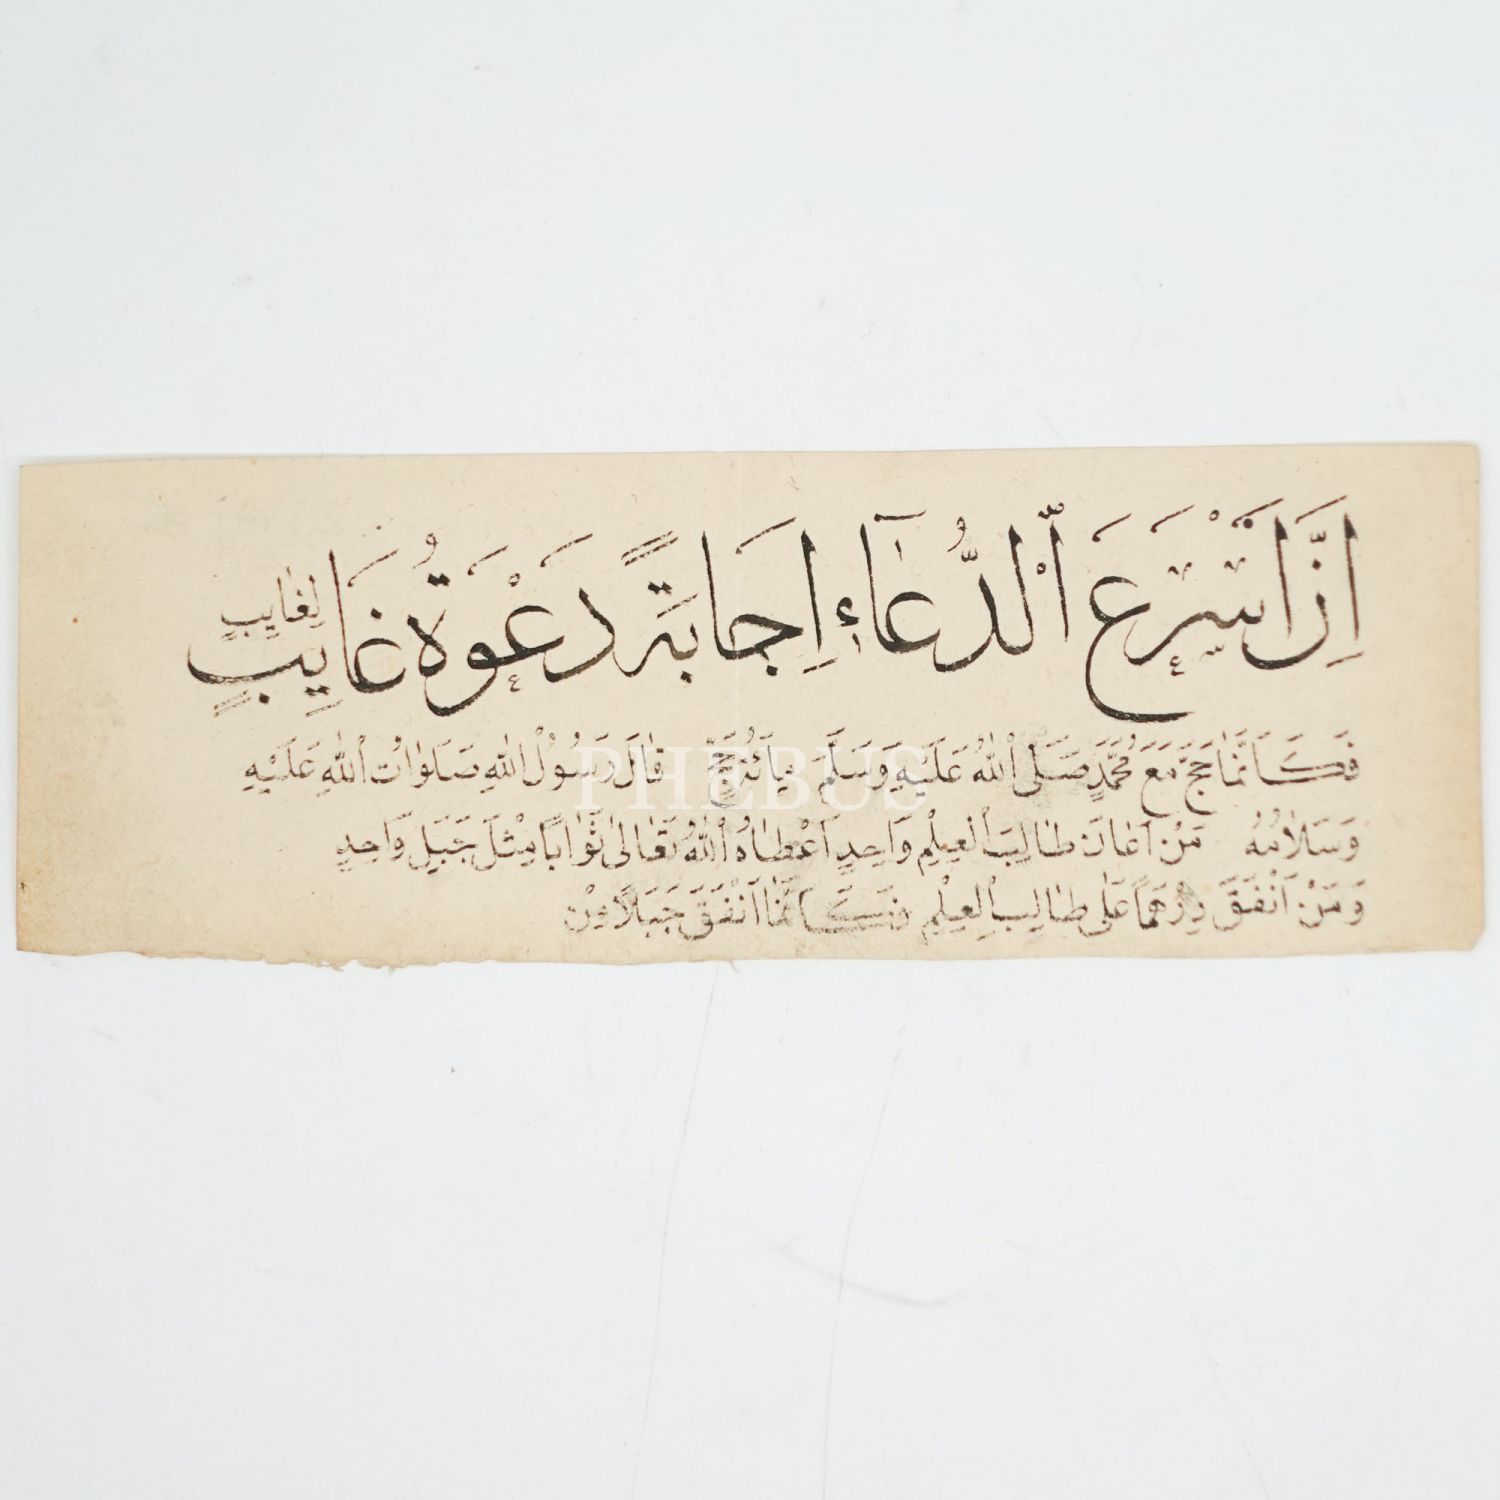 اِنَّ اَسْرَعَ الدُّعَآءِ اِجَابَةً دَعْوَةُ غَايِبٍ
لِغَايِبٍ
فَكَاَنَّمَا حَجَّ مَعَ مُحَمَّدٍ صَلَّى اللهُ عَلَيْهِ وَسَلَّمَ حَجٍّ قَالَ رَسُولُ اللهِ صَلَوَاتُ اللهِ عَلَيْهِ
وَسَلَامُهُ مَنْ اَعَانَ طَالِبَ الْعِلْمِ وَاحِدٍ اَعْطَاهُ اللهُ تَعَالٰى ثَوَابًا مِثْلَ جَبَلٍ وَاحِدٍ
وَمَنْ اَنْفَقَ دِرْهَمًا عَلٰى طَالِبِ الْعِلْمِ فَكَاَنَّمَا اَنْفَقَ جَبَلًا مِنْ
PHEBUS